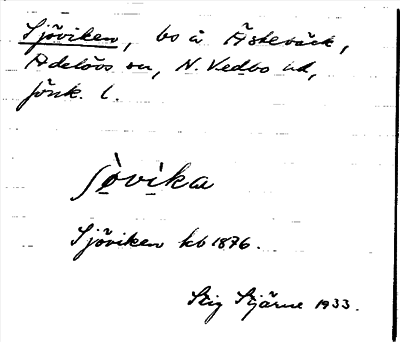 Sjöviken, bo å Ästebäck,
Adelövs sn, N. Vedbo hd,
Jönk. l.
Sjöviken kb 1876.
Stig Stjärne 1933.